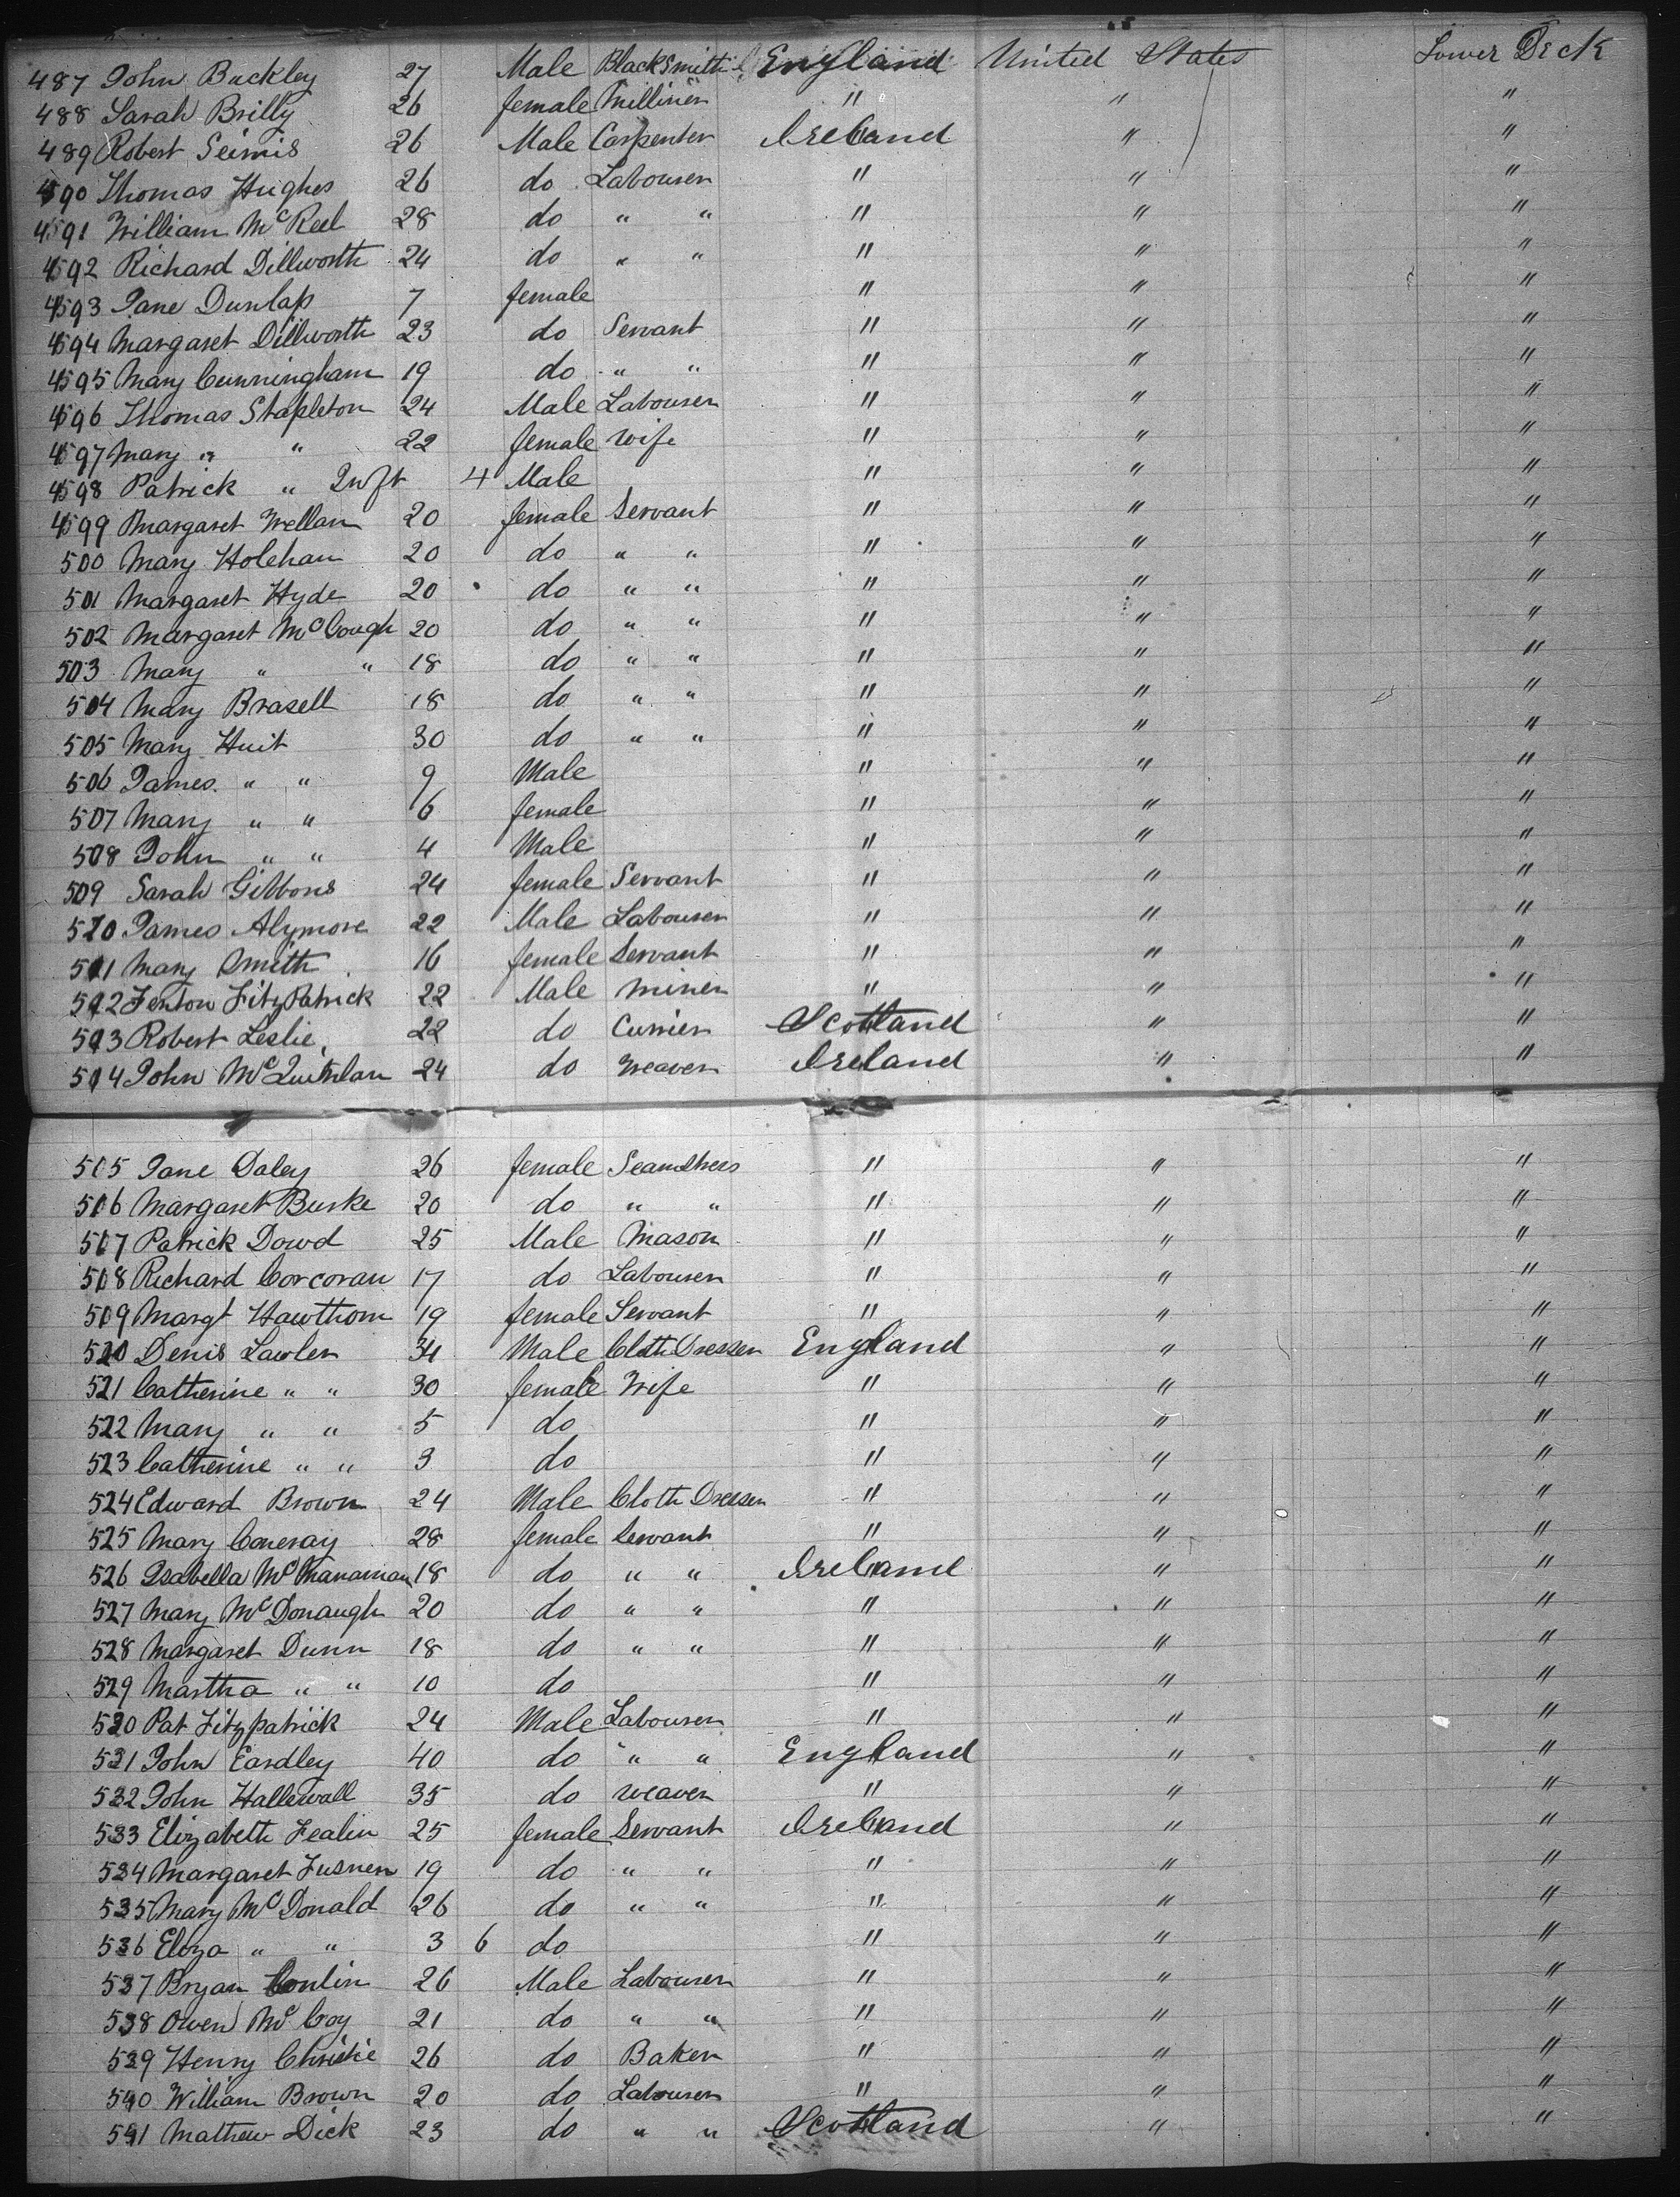 487 John Buckley 27 Male BlackSmith England United States Lower Deck
488 Sarah Brilly 26 female Milliner " " "
489 Robert Seimis 26 Male Carpenter Ireland " "
490 Thomas Hughes 26 do Labourer " " "
491 William McReel 28 do " " " " "
492 Richard Dillworth 24 do " " " " "
493 Jane Dunlap 7 female " " "
494 Margaret Dillworth 23 do Servant " " "
495 Mary Cunningham 19 do " " " " "
496 Thomas Stapleton 24 Male Labourer " " "
497 Mary " " 22 female wife " " "
498 Patrick " Inft 4 Male " " "
499 Margaret Wellan 20 female Servant " " "
500 Mary Holehan 20 do " " " " "
501 Margaret Hyde 20 do " " " " "
502 Margaret McCough 20 do " " " " "
503 Mary " " 18 do " " " " "
504 Mary Brasell 18 do " " " " "
505 Mary Huit 30 do " " " " "
506 James " " 9 Male " " "
507 Mary " " 6 female " " "
508 John " " 4 Male " " "
509 Sarah Gibbons 24 female Servant " " "
510 James Alymore 22 Male Labourer " " "
511 Mary Smith 16 female Servant " " "
512 Fenton FitzPatrick 22 Male Miner " " "
513 Robert Leslie 22 do Currier Scotland " "
514 John McQuinlan 24 do Weaver Ireland " "
515 Jane Daley 26 female Seamstress " " "
516 Margaret Burke 20 do " " " " "
517 Patrick Dowd 25 Male Mason " " "
518 Richard Corcoran 17 do Labourer " " "
519 Margt Hawthorn 19 female Servant " " "
520 Denis Lawler 34 Male Cloth Dresser England " "
521 Catherine " " 30 female Wife " " "
522 Mary " " 5 do " " "
523 Catherine " " 3 do " " "
524 Edward Brown 24 Male Cloth Dresser " " "
525 Mary Coneray 28 female Servant " " "
526 Isabella McManaman 18 do " " Ireland " "
527 Mary McDonaugh 20 do " " " " "
528 Margaret Dunn 18 do " " " " "
529 Martha " " 10 do " " "
530 Pat Fitzpatrick 24 Male Labourer " " "
531 John Eardley 40 do " " England " "
532 John Hallewall 35 do weaver " " "
533 Elizabeth Fealin 25 female Servant Ireland " "
534 Margaret Fusner 19 do " " " " "
535 Mary McDonald 26 do " " " " "
536 Eliza " " 3 6 do " " "
537 Bryan Conlin 26 Male Labourer " " "
538 Owen McCoy 21 do " " " " "
539 Henry Christie 26 do Baker " " "
540 William Brown 20 do Labourer " " "
541 Mathew Dick 23 do " " Scotland " "